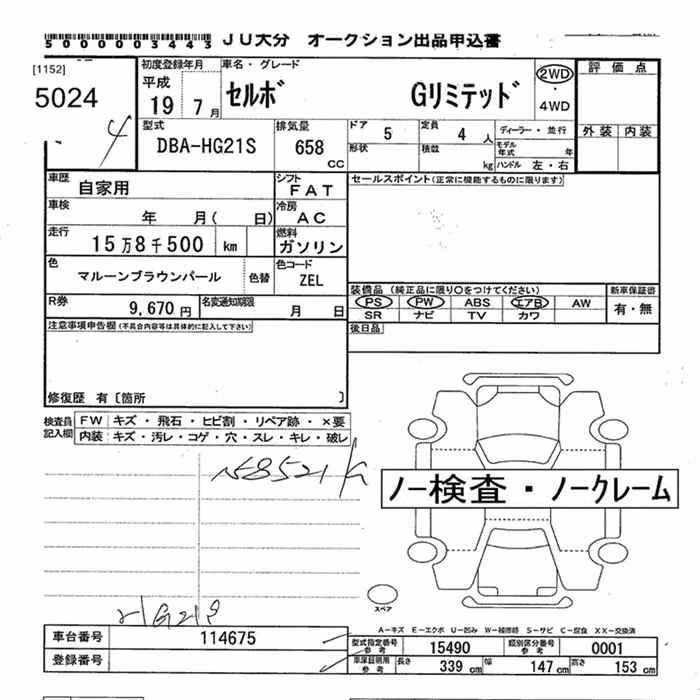 5000003443 JU大分 オークション出品申込書
[1152]
5024
4
初度登録年月 車名・グレード
平成 19 7月 セルボ Gリミテッド 2WD ・ 4WD
評価点
外装 内装
型式 DBA-HG21S
排気量 658 CC
ドア 5 定員 4 人 ディーラー・並行
形状 積載 kg モデル年式 年
ハンドル 左・右
車歴 自家用
シフト FAT
セールスポイント(正常に機能するものに限ります)
車検 年 月( 日)
冷房 AC
走行 15万8千500 km
燃料 ガソリン
色 マルーンブラウンパール 色替
色コード ZEL
装備品 (純正品に限り○をつけてください) 新車保証書
PS PW ABS エアB AW 有・無
SR ナビ TV カワ
R券 9,670円 名変通知期限 月 日
後日品
注意事項申告欄(不具合内容等は具体的に記入して下さい)
修復歴 有〔箇所 〕
検査員記入欄
FW キズ・飛石・ヒビ割・リペア跡・×要
内装 キズ・汚レ・コゲ・穴・スレ・キレ・破レ
158521
ノー検査・ノークレーム
スペア
HG21S
A-キズ E-エクボ U-凹み W-補修跡 S-サビ C-腐食 XX-交換済
車台番号 114675
登録番号
型式指定番号 参考 15490 類別区分番号 参考 0001
車庫証明用 参考 長さ 339 cm 幅 147 cm 高さ 153 cm